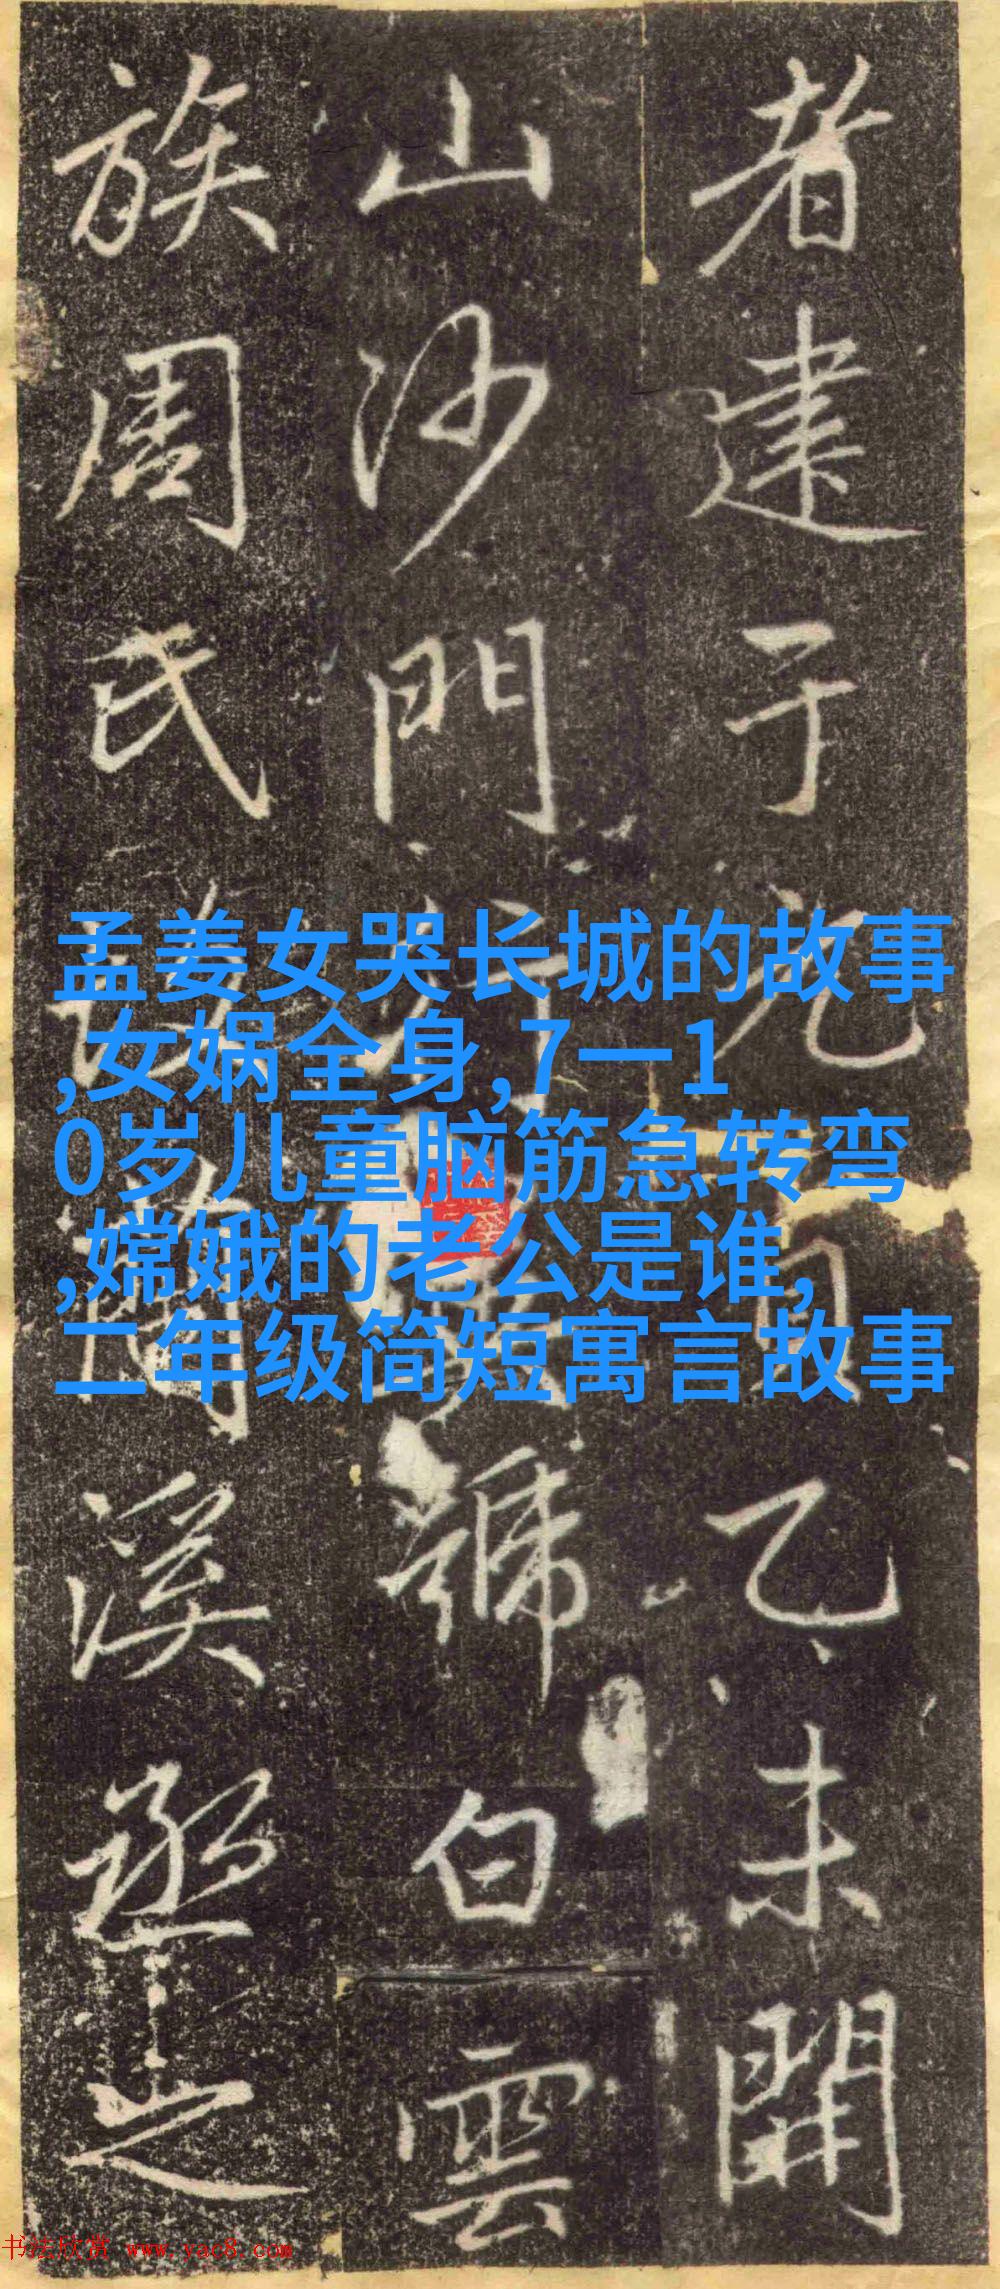 者建于元
乙未開
山沙門
號白雲
族周氏
溪丞之
孟姜女哭长城的故事
,女娲全身,7一1
0岁儿童脑筋急转弯
,嫦娥的老公是谁,
二年级简短寓言故事
书法欣赏 www.yac8.com